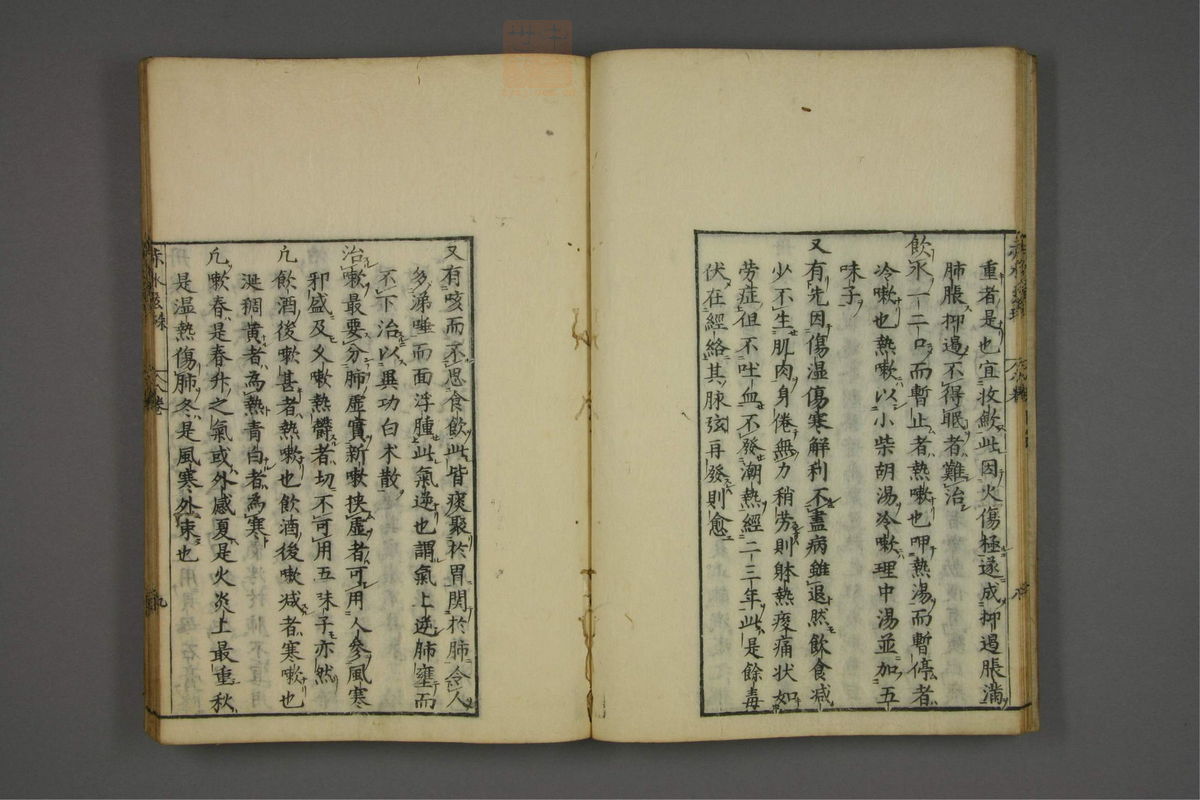 重者是也宜收斂此因火傷極遂成抑過脹滿
肺脹抑過不得眠者難治
飲水一二口而暫止者熱嗽也呷熱湯而暫停者
冷嗽也熱嗽以小柴胡湯冷嗽理中湯並加五
味子
又有先因傷湿傷寒解利不盡病雖退然飲食减
少不生肌肉身倦無力稍劳則躰熱痠痛状如
劳症但不吐血不發潮熱經二三年此是餘毒
伏在經絡其脉弦再發則愈
又有咳而不思食飲此皆痰聚於胃関於肺令人
多涕唾而面浮腫此氣逆也謂氣上逆肺壅而
不下治以異功白术散
治嗽最要分肺虚實新嗽挟虚者可用人參風寒
邪盛及久嗽熱欝者切不可用五味子亦然
凢飲酒後嗽甚者熱嗽也飲酒後嗽减者寒嗽也
涎稠黄者為熱青白者為寒
凢嗽春是春升之氣或外感夏是火炎上最重秋
是湿熱傷肺冬是風寒外束也
赤水玄珠
卷
九